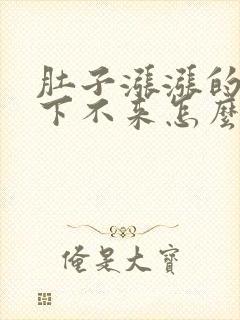 肚子漲漲的
下不来怎麽
俺是大寶